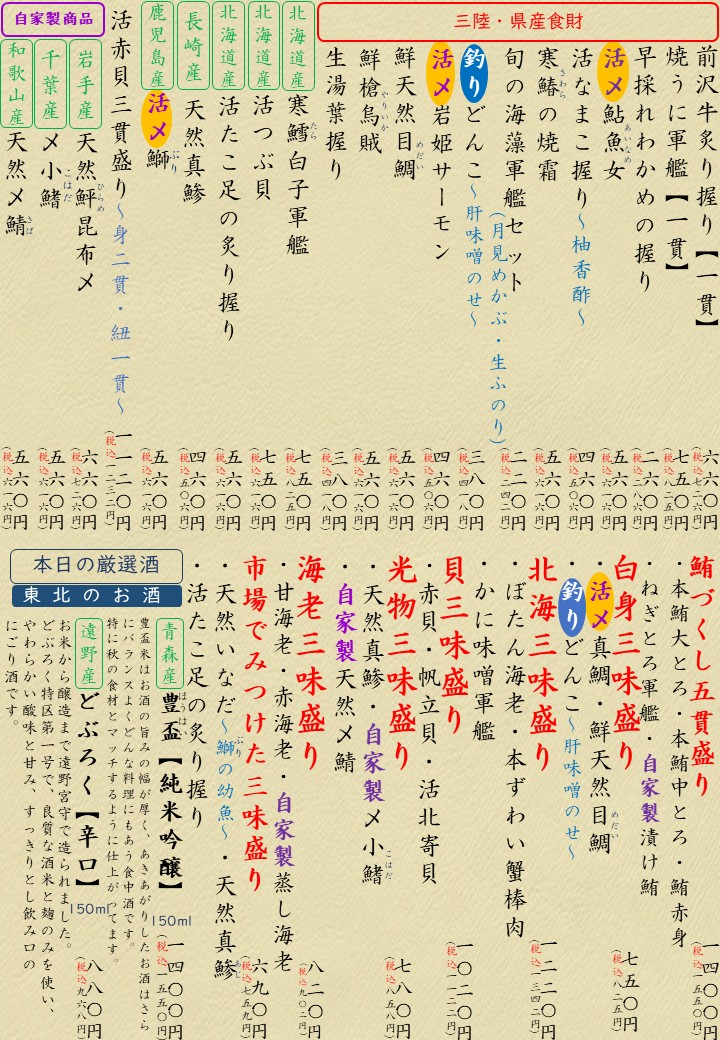 三陸・県産食財
前沢牛炙り握り【一貫】
六六〇円
(税込七二六円)
焼うに軍艦【一貫】
七五〇円
(税込八二五円)
早採れわかめの握り
二六〇円
(税込二八六円)
活〆鮎魚女
あいなめ
五六〇円
(税込六一六円)
活なまこ握り～柚香酢～
四六〇円
(税込五〇六円)
寒鰆の焼霜
さわら
五六〇円
(税込六一六円)
旬の海藻軍艦セット
(月見めかぶ・生ふのり)
二二〇円
(税込二四二円)
釣りどんこ～肝味噌のせ～
三八〇円
(税込四一八円)
活〆岩姫サーモン
四六〇円
(税込五〇六円)
鮮天然目鯛
めだい
五六〇円
(税込六一六円)
鮮槍烏賊
やりいか
五六〇円
(税込六一六円)
生湯葉握り
三八〇円
(税込四一八円)
北海道産
寒鱈白子軍艦
たら
七五〇円
(税込八二五円)
北海道産
活つぶ貝
七五〇円
(税込八二五円)
北海道産
活たこ足の炙り握り
五六〇円
(税込六一六円)
長崎産
天然真鯵
四六〇円
(税込五〇六円)
鹿児島産
活〆鰤
ぶり
五六〇円
(税込六一六円)
活赤貝三貫盛り～身二貫・紐一貫～
一一二〇円
(税込一二三二円)
自家製商品
岩手産
天然鮃昆布〆
ひらめ
六六〇円
(税込七二六円)
千葉産
〆小鰭
こはだ
五六〇円
(税込六一六円)
和歌山産
天然〆鯖
さば
五六〇円
(税込六一六円)
鮪づくし五貫盛り
・本鮪大とろ・本鮪中とろ・鮪赤身
・ねぎとろ軍艦・自家製漬け鮪
一四〇〇円
(税込一五四〇円)
白身三味盛り
・活〆真鯛・鮮天然目鯛
めだい
・釣りどんこ～肝味噌のせ～
七五〇円
(税込八二五円)
北海三味盛り
・ぼたん海老・本ずわい蟹棒肉
・かに味噌軍艦
一二二〇円
(税込一三四二円)
貝三味盛り
・赤貝・帆立貝・活北寄貝
一〇二〇円
(税込一一二二円)
光物三味盛り
・天然真鯵・自家製〆小鰭
こはだ
・自家製天然〆鯖
七八〇円
(税込八五八円)
海老三味盛り
・甘海老・赤海老・自家製蒸し海老
八二〇円
(税込九〇二円)
市場でみつけた三味盛り
・天然いなだ～鰤の幼魚～・天然真鯵
ぶり
あじ
・活たこ足の炙り握り
六九〇円
(税込七五九円)
本日の厳選酒
東北のお酒
青森産
豊盃【純米吟醸】
ほうはい
150ml
一四〇〇円
(税込一五四〇円)
豊盃米はお酒の旨みの幅が厚く、あきあがりしたお酒はさら
にバランスよくどんな料理にもあう食中酒です。
特に秋の食材とマッチするように仕上がってます。
遠野産
どぶろく【辛口】
150ml
八八〇円
(税込九六八円)
お米から醸造まで遠野宮守で造られました。
どぶろく特区第一号で、良質な酒米と麹のみを使い、
やわらかい酸味と甘み、すっきりとし飲み口の
にごり酒です。